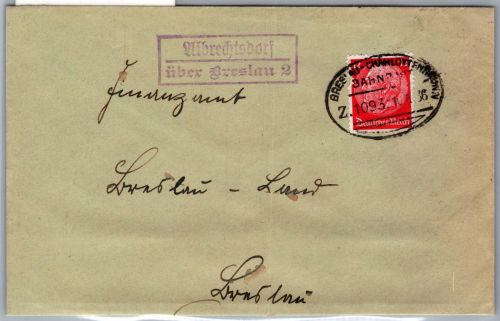 Albrechtsdorf
über Breslau 2
BRESLAU-CHARLOTTENBRUNN
BAHNPOST
Z. 1093
Deutsches Reich
Finanzamt
Breslau - Land
Breslau